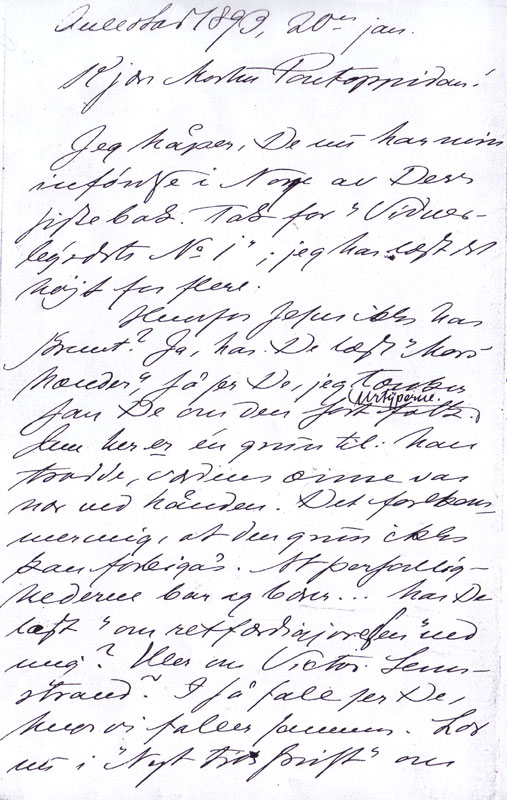 Aulestad 1893, 20de jan.
Kjære Morten Pontoppidan!
Jeg håper, De nu har min
i Norge av Deres
siste bok. Tak for "Vidnes-
byrdets No 1"; jeg har læst det
højt for flere.
Hvorfor Jesus ikke har
skrevet? Ja, har De læst "Mors
hænder", så ser De, jeg tænker
som De om den
Urtyperne.
Men her er én grun til: han
trodde, værdens ænne var
nær ved hånden. Det forekom-
mer mig, at den grun ikke
kan forbigås. At personlig-
hederne bar og bær... har De
læst "om retfærdiggjørelsen" ved
mig? Eller om Victor Lenn-
strand? I så fall ser De,
hvor vi faller sammen. Lov
nu i "Nyt tidsskrift" om